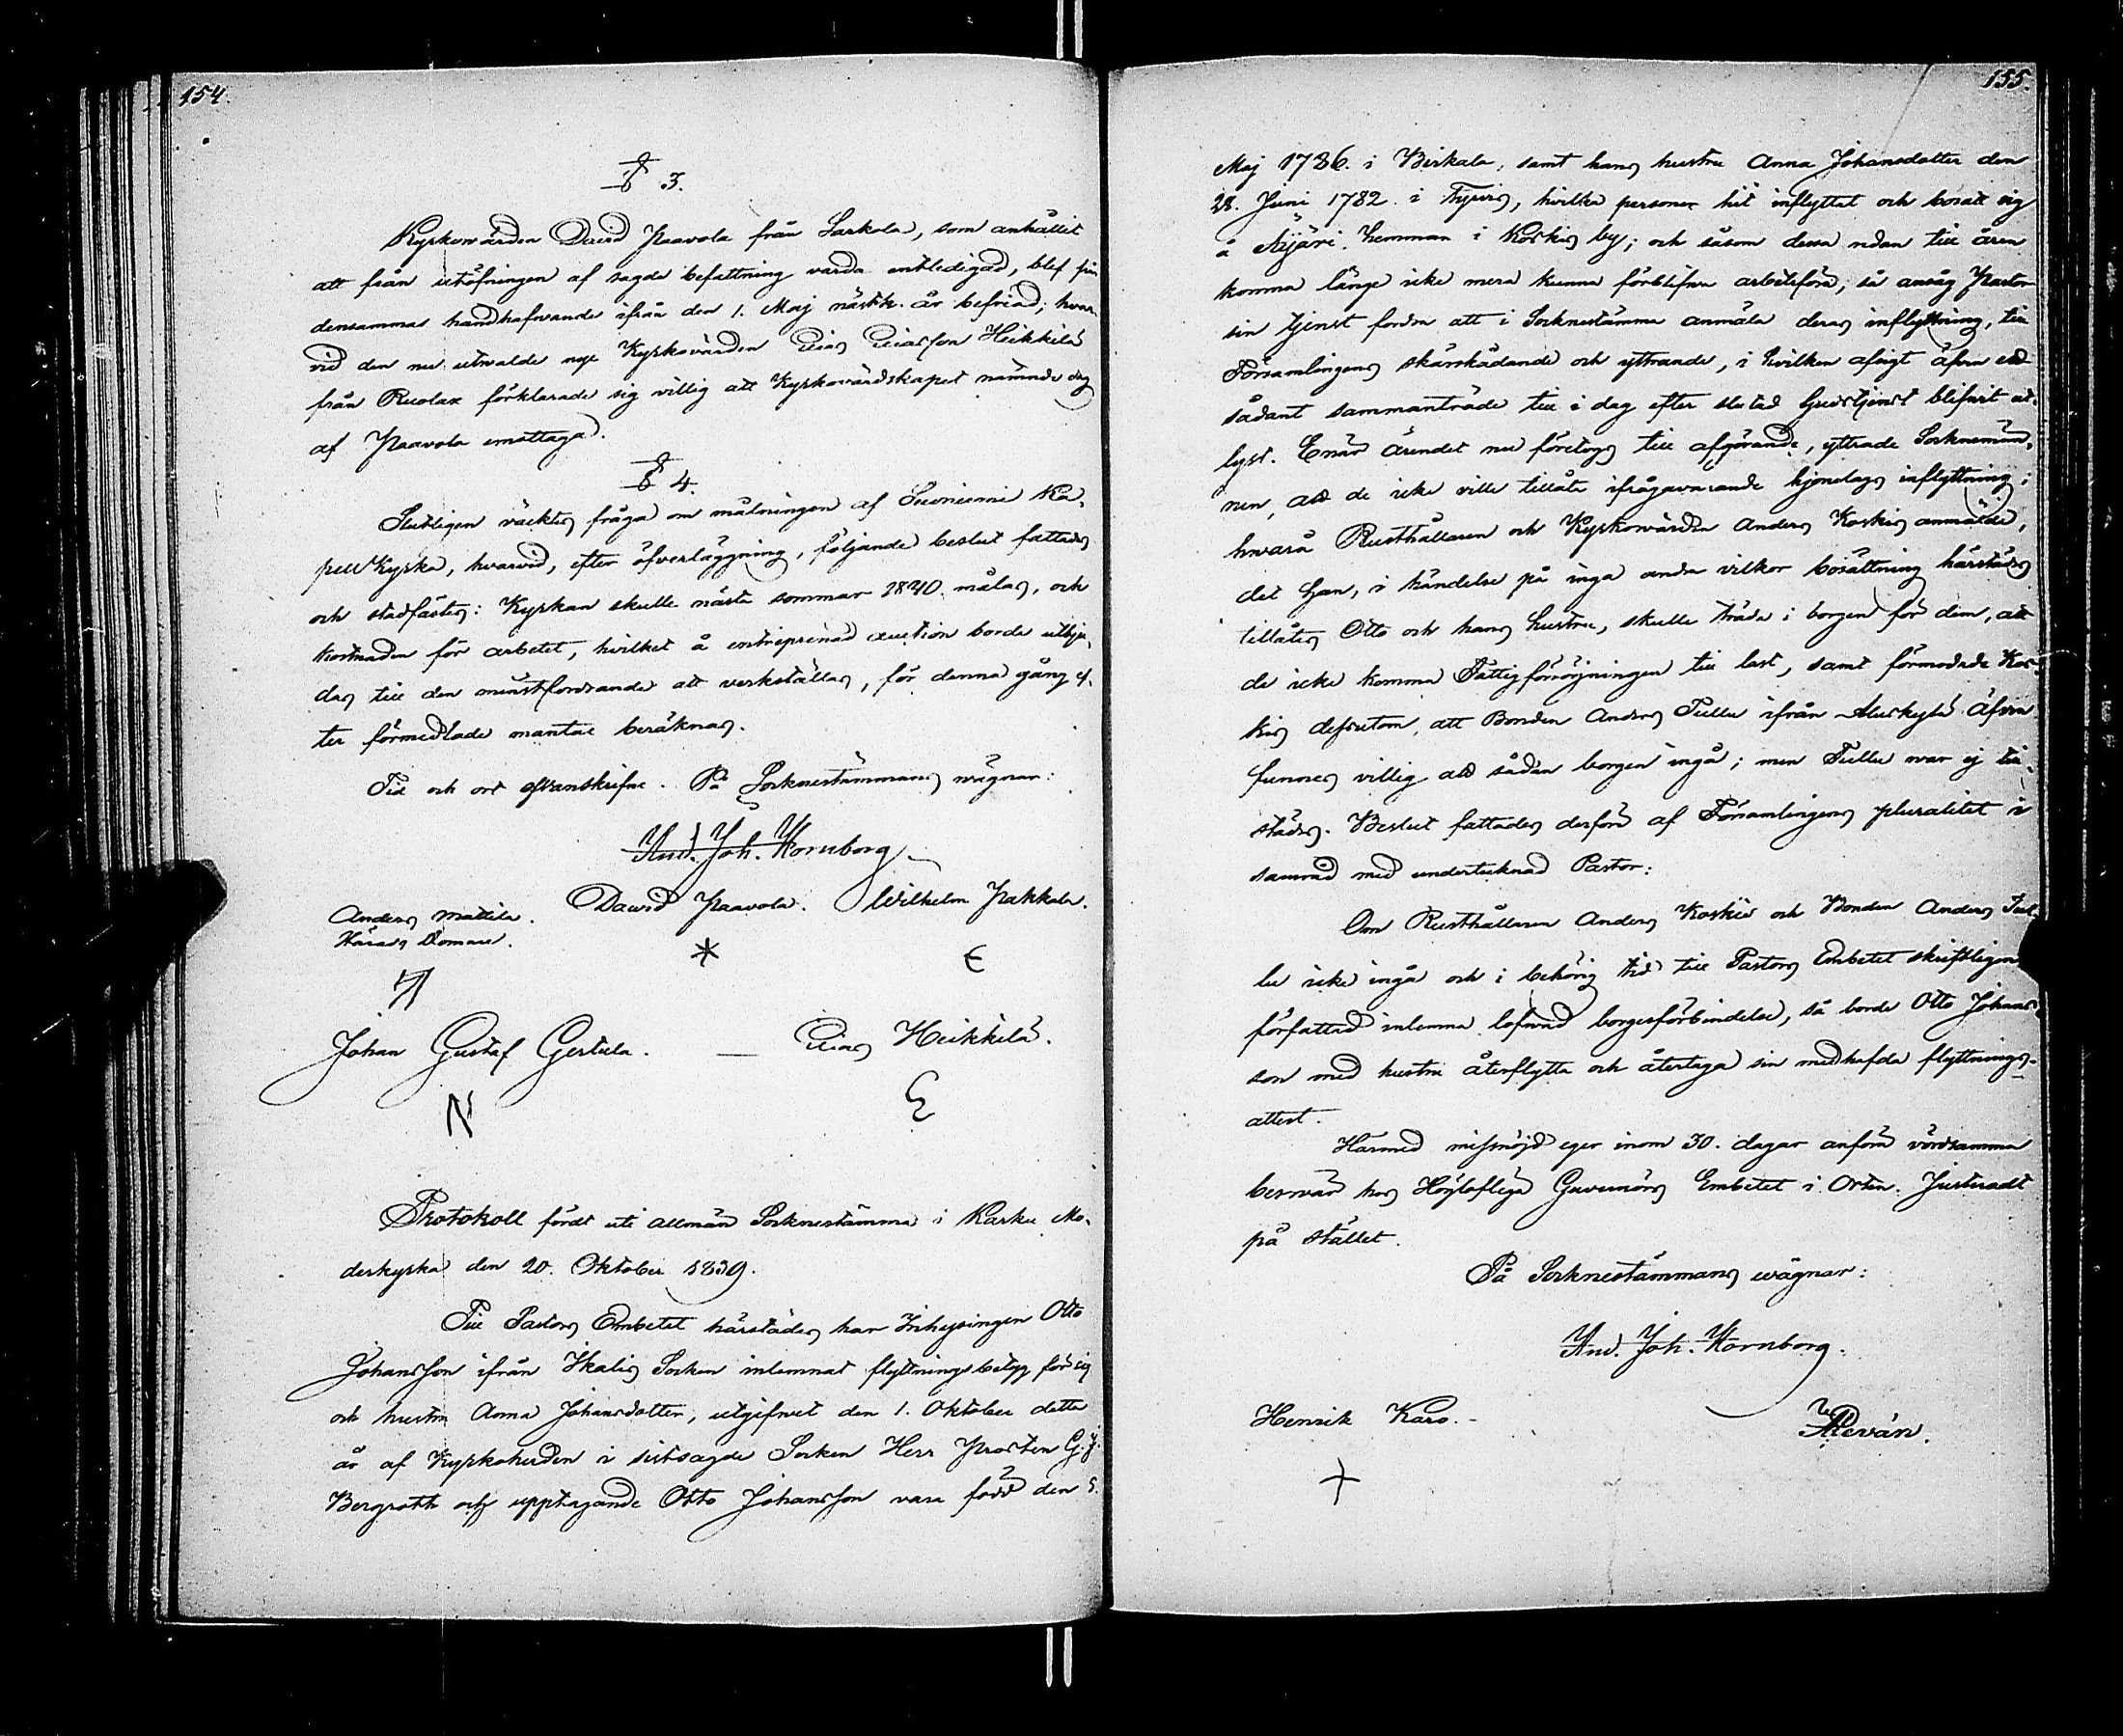 154.
§ 3.
Kyrkowärden David Paavola från Sarkola, som anhållit
att från utöfningen af sagde befattning varda entledigad, blef från
densammas handhafvande ifrån den 1. Maj nästk. år befriad; hvar-
vid den nu utvalde nye Kyrkovärden Elias Eliasson Heikkilä
från Ruolax förklarade sig villig att Kyrkovärdskapet nämnde dag
af Paavola emottaga.
§ 4.
Slutligen väcktes fråga om målningen af Suoniemi Ka-
pell Kyrka, hvarvid, efter öfverläggning, följande beslut fattades
och stadfästes: Kyrkan skulle nästa sommar 1840. målas, och
kostnaden för arbetet, hvilket å entreprenad auction borde utbju-
das till den minstfordrande att verkställas, för denna gång ef-
ter förmedlade mantal beräknas.
Tid och ort ofvanskrifne. På Socknestämmans wägnar:
And. Joh. Hornborg
Anders Mattila. David Paavola. Wilhelm Pakkala.
Härads Domare.
Johan Gustaf Gertula. — Elias Heikkilä.
Protokoll fördt uti allmän Socknestämma i Karku Mo-
derkyrka den 20. Oktober 1839.
Till Pastors Embetet härstädes har Inhysingen Otto
Johansson ifrån Ikalis Socken inlemnat flyttningsbetyg för sig
och hustru Anna Johansdotter, utgifvet den 1. Oktober detta
år af Kyrkoherden i sistsagde Socken Herr Prosten G. J.
Bergroth och upptagande Otto Johansson vara född den 5.
155.
Maj 1786. i Birkala, samt hans hustru Anna Johansdotter den
28. Juni 1782. i Tyrvis, hvilka personer hit inflyttat och bosatt sig
å Äijäri hemman i Koskis by; och såsom dessa redan till åren
komna länge icke mera kunna förblifva arbetsföra, så ansåg Pastor
sin tjenst fordra att i Socknestämma anmäla deras inflyttning, till
Församlingens skärskådande och yttrande, i hvilken afsigt äfven ett
sådant sammanträde till i dag efter slutad Gudstjenst blifvit ut-
lyst. Enär ärendet nu företogs till afgörande, yttrade Socknemän-
nen, att de icke ville tillåta ifrågavarande hjonelags inflyttning;
hvarå Rusthållaren och Kyrkowärden Anders Koskis anmälde,
det han, i händelse på inga andra vilkor bosättning härstädes
tillåtes Otto och hans hustru, skulle träda i borgen för dem, att
de icke komma Fattigförsörjningen till last, samt förmodade Kos-
kis dessutom, att Bonden Anders Tullu ifrån Aluskylä äfven
funnes villig att sådan borgen ingå; men Tullu war ej till-
städes. Beslut fattades derföre af Församlingens pluralitet i
samråd med undertecknad Pastor:
Om Rusthållaren Anders Koskis och Bonden Anders Tul-
lu icke ingå och i behörig tid till Pastors Embetet skriftligen
författad inlemna lofvad borgesförbindelse, så borde Otto Johans-
son med hustru återflytta och återtaga sin medhafda flyttnings-
attest.
Härmed missnöjd eger inom 30. dagar anföra vördsamma
besvär hos Höglofliga Guvernörs Embetet i Orten. Justeradt
på stället.
På Socknestämmans wägnar:
And. Joh. Hornborg.
Henrik Karo.